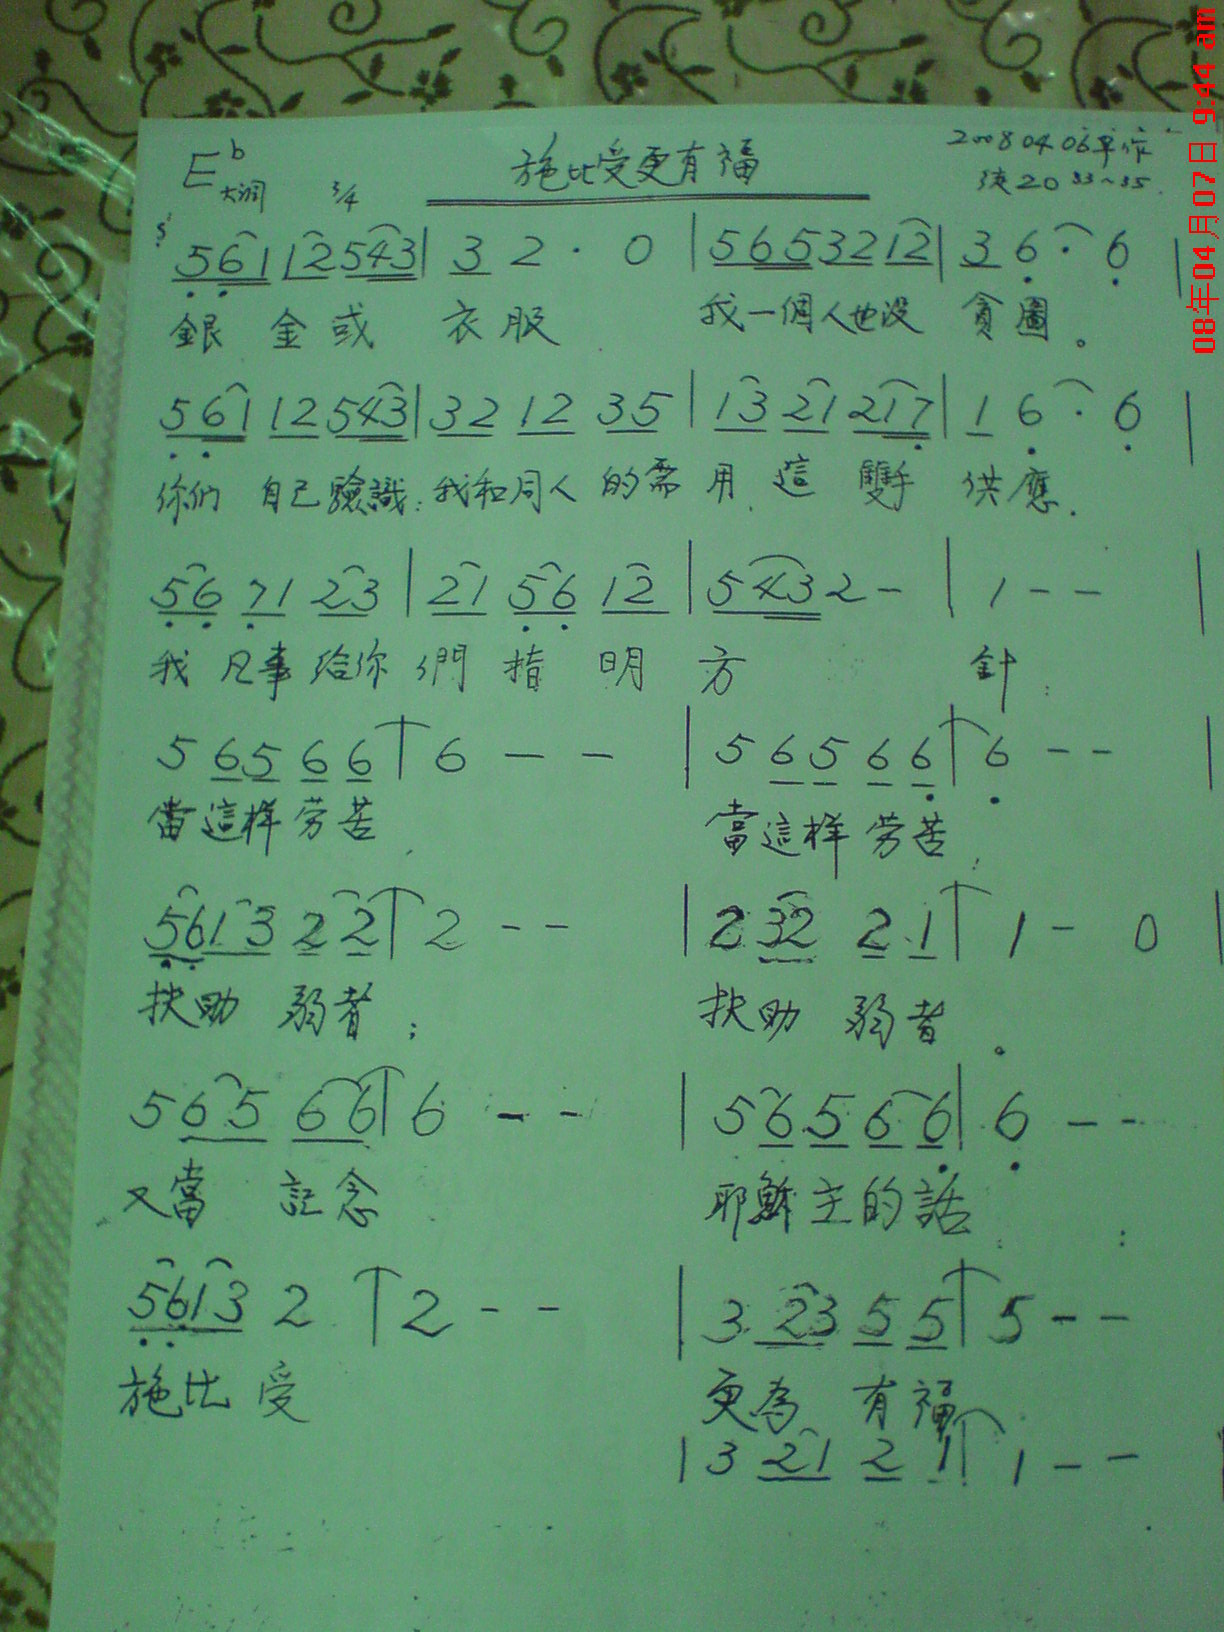 E♭大调 3/4 施比受更有福 2008.04.06
徒20 33~35
5 6 1 1 2 5 4 3 | 3 2 · 0 | 5 6 5 3 2 1 2 | 3 6 · 6 |
銀 金 或 衣 服 我一個人也没 貪圖。
5 6 1 1 2 5 4 3 | 3 2 1 2 3 5 | 1 3 2 1 2 1 7 | 1 6 · 6 |
你们 自己 驗識:我和同人 的需 用 這 雙手 供應.
5 6 7 1 2 3 | 2 1 5 6 1 2 | 5 4 3 2 - | 1 - - |
我 凡事 给你 們 指 明 方 針
5 6 5 6 6 | 6 - - | 5 6 5 6 6 | 6 - - |
當這样 劳苦 當這样 劳苦
5 6 1 3 2 2 | 2 - - | 2 3 2 2 1 | 1 - 0 |
扶助 弱者; 扶助 弱者。
5 6 5 6 6 | 6 - - | 5 6 5 6 6 | 6 - -
又當 記念 耶穌主的話:
5 6 1 3 2 | 2 - - | 3 2 3 5 5 | 5 - -
施比 受 更為 有福
| 3 2 1 2 1 | 1 - -
08年04月07日 9:44 am